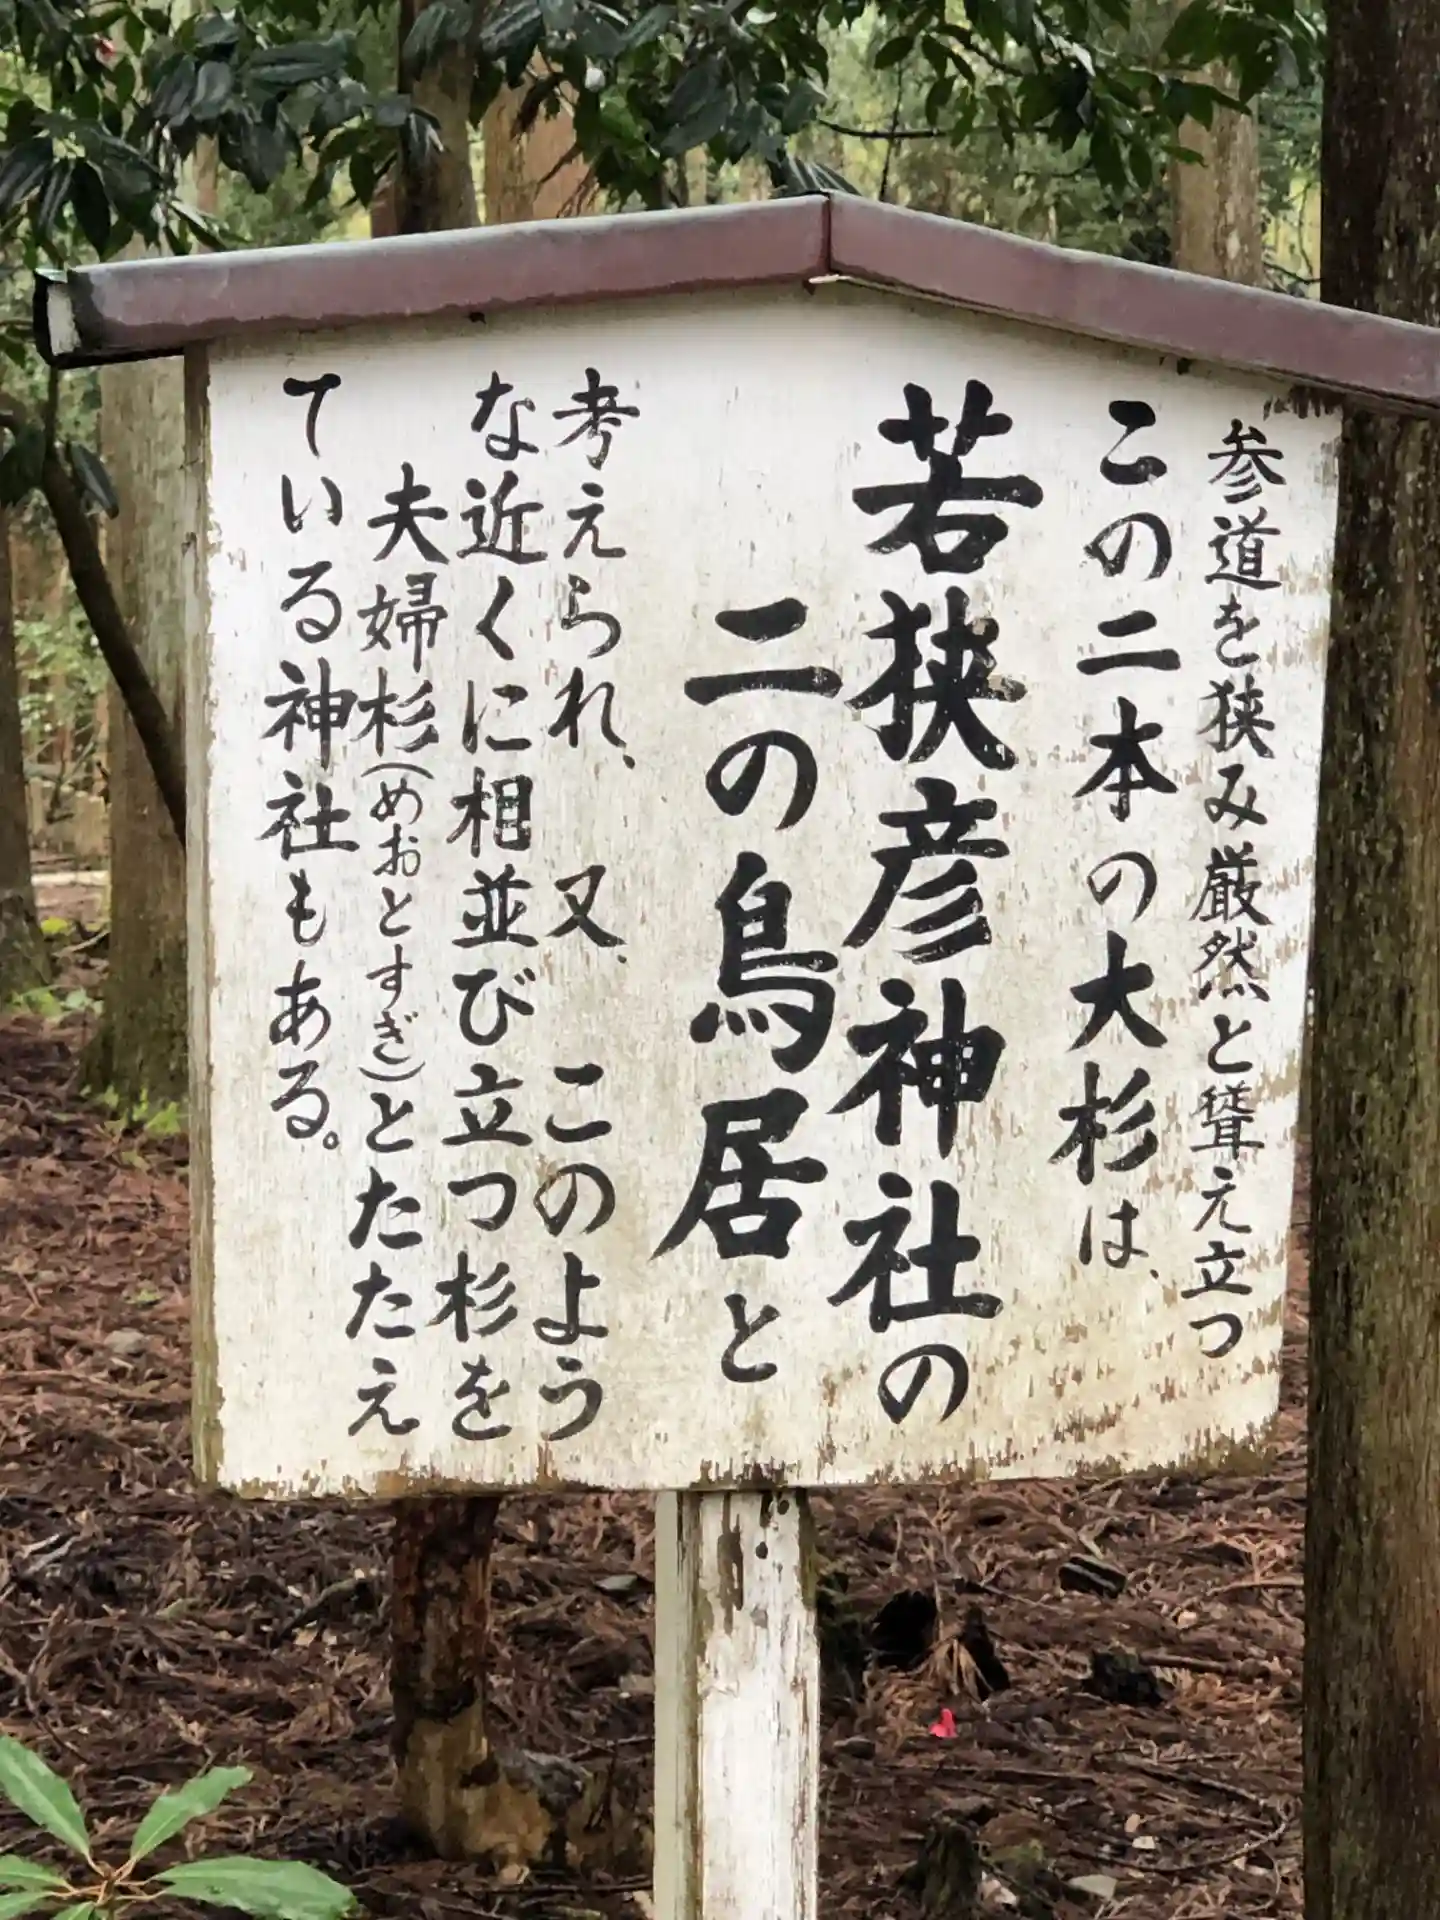 参道を狭み厳然と聳え立つ
この二本の大杉は、
若狭彦神社の
二の鳥居と
考えられ、又、このよう
な近くに相並び立つ杉を
夫婦杉(めおとすぎ)とたたえ
ている神社もある。